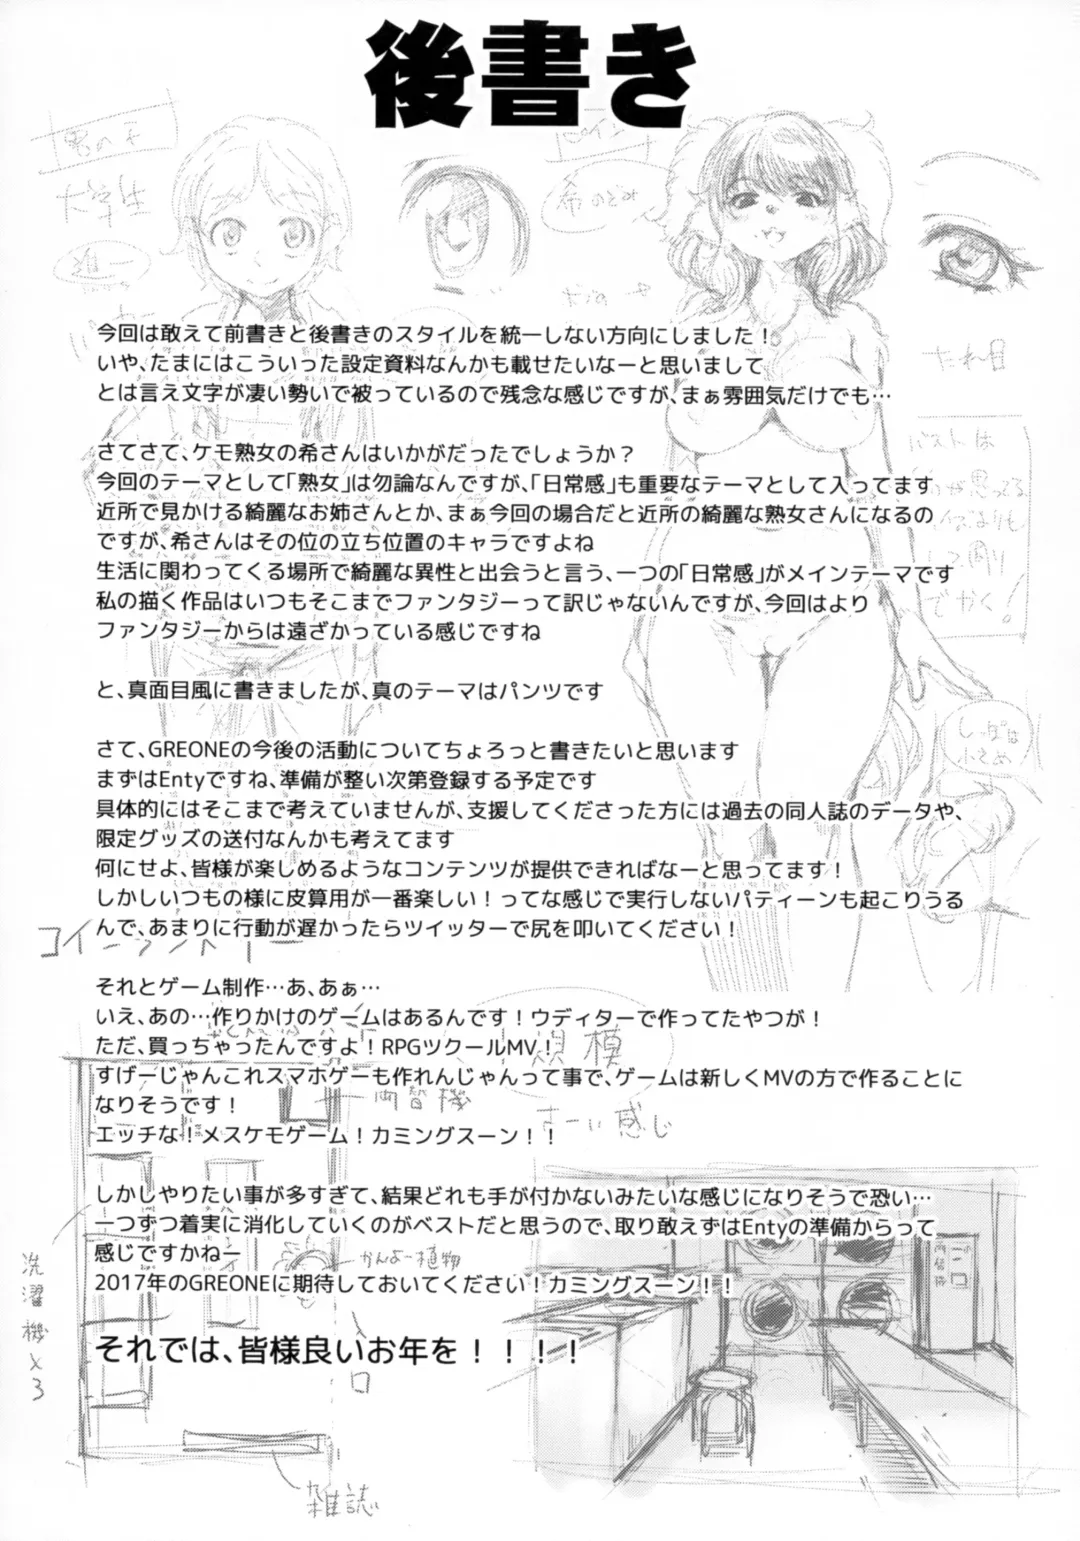 後書き
男の子
大学生
進一
パーカー
希のぞみ
たれ目
バストは
でかく!
しっぽは
小さめ!
今回は敢えて前書きと後書きのスタイルを統一しない方向にしました！
いや、たまにはこういった設定資料なんかも載せたいなーと思いまして
とは言え文字が凄い勢いで被っているので残念な感じですが、まぁ雰囲気だけでも…
さてさて、ケモ熟女の希さんはいかがだったでしょうか？
今回のテーマとして「熟女」は勿論なんですが、「日常感」も重要なテーマとして入ってます
近所で見かける綺麗なお姉さんとか、まぁ今回の場合だと近所の綺麗な熟女さんになるの
ですが、希さんはその位の立ち位置のキャラですよね
生活に関わってくる場所で綺麗な異性と出会うと言う、一つの「日常感」がメインテーマです
私の描く作品はいつもそこまでファンタジーって訳じゃないんですが、今回はより
ファンタジーからは遠ざかっている感じですね
と、真面目風に書きましたが、真のテーマはパンツです
さて、GREONEの今後の活動についてちょろっと書きたいと思います
まずはEntyですね、準備が整い次第登録する予定です
具体的にはそこまで考えていませんが、支援してくださった方には過去の同人誌のデータや、
限定グッズの送付なんかも考えてます
何にせよ、皆様が楽しめるようなコンテンツが提供できればなーと思ってます！
しかしいつもの様に皮算用が一番楽しい！ってな感じで実行しないパティーンも起こりうる
んで、あまりに行動が遅かったらツイッターで尻を叩いてください！
コインランドリー
それとゲーム制作…あ、あぁ…
いえ、あの…作りかけのゲームはあるんです！ウディターで作ってたやつが！
ただ、買っちゃったんですよ！RPGツクールMV！
すげーじゃんこれスマホゲーも作れんじゃんって事で、ゲームは新しくMVの方で作ることに
なりそうです！
エッチな！メスケモゲーム！カミングスーン！！
両替機
しかしやりたい事が多すぎて、結果どれも手が付かないみたいな感じになりそうで恐い…
一つずつ着実に消化していくのがベストだと思うので、取り敢えずはEntyの準備からって
感じですかねー
2017年のGREONEに期待しておいてください！カミングスーン！！
それでは、皆様良いお年を！！！！
かんよー植物
洗濯機×3
入口
雑誌
両替機